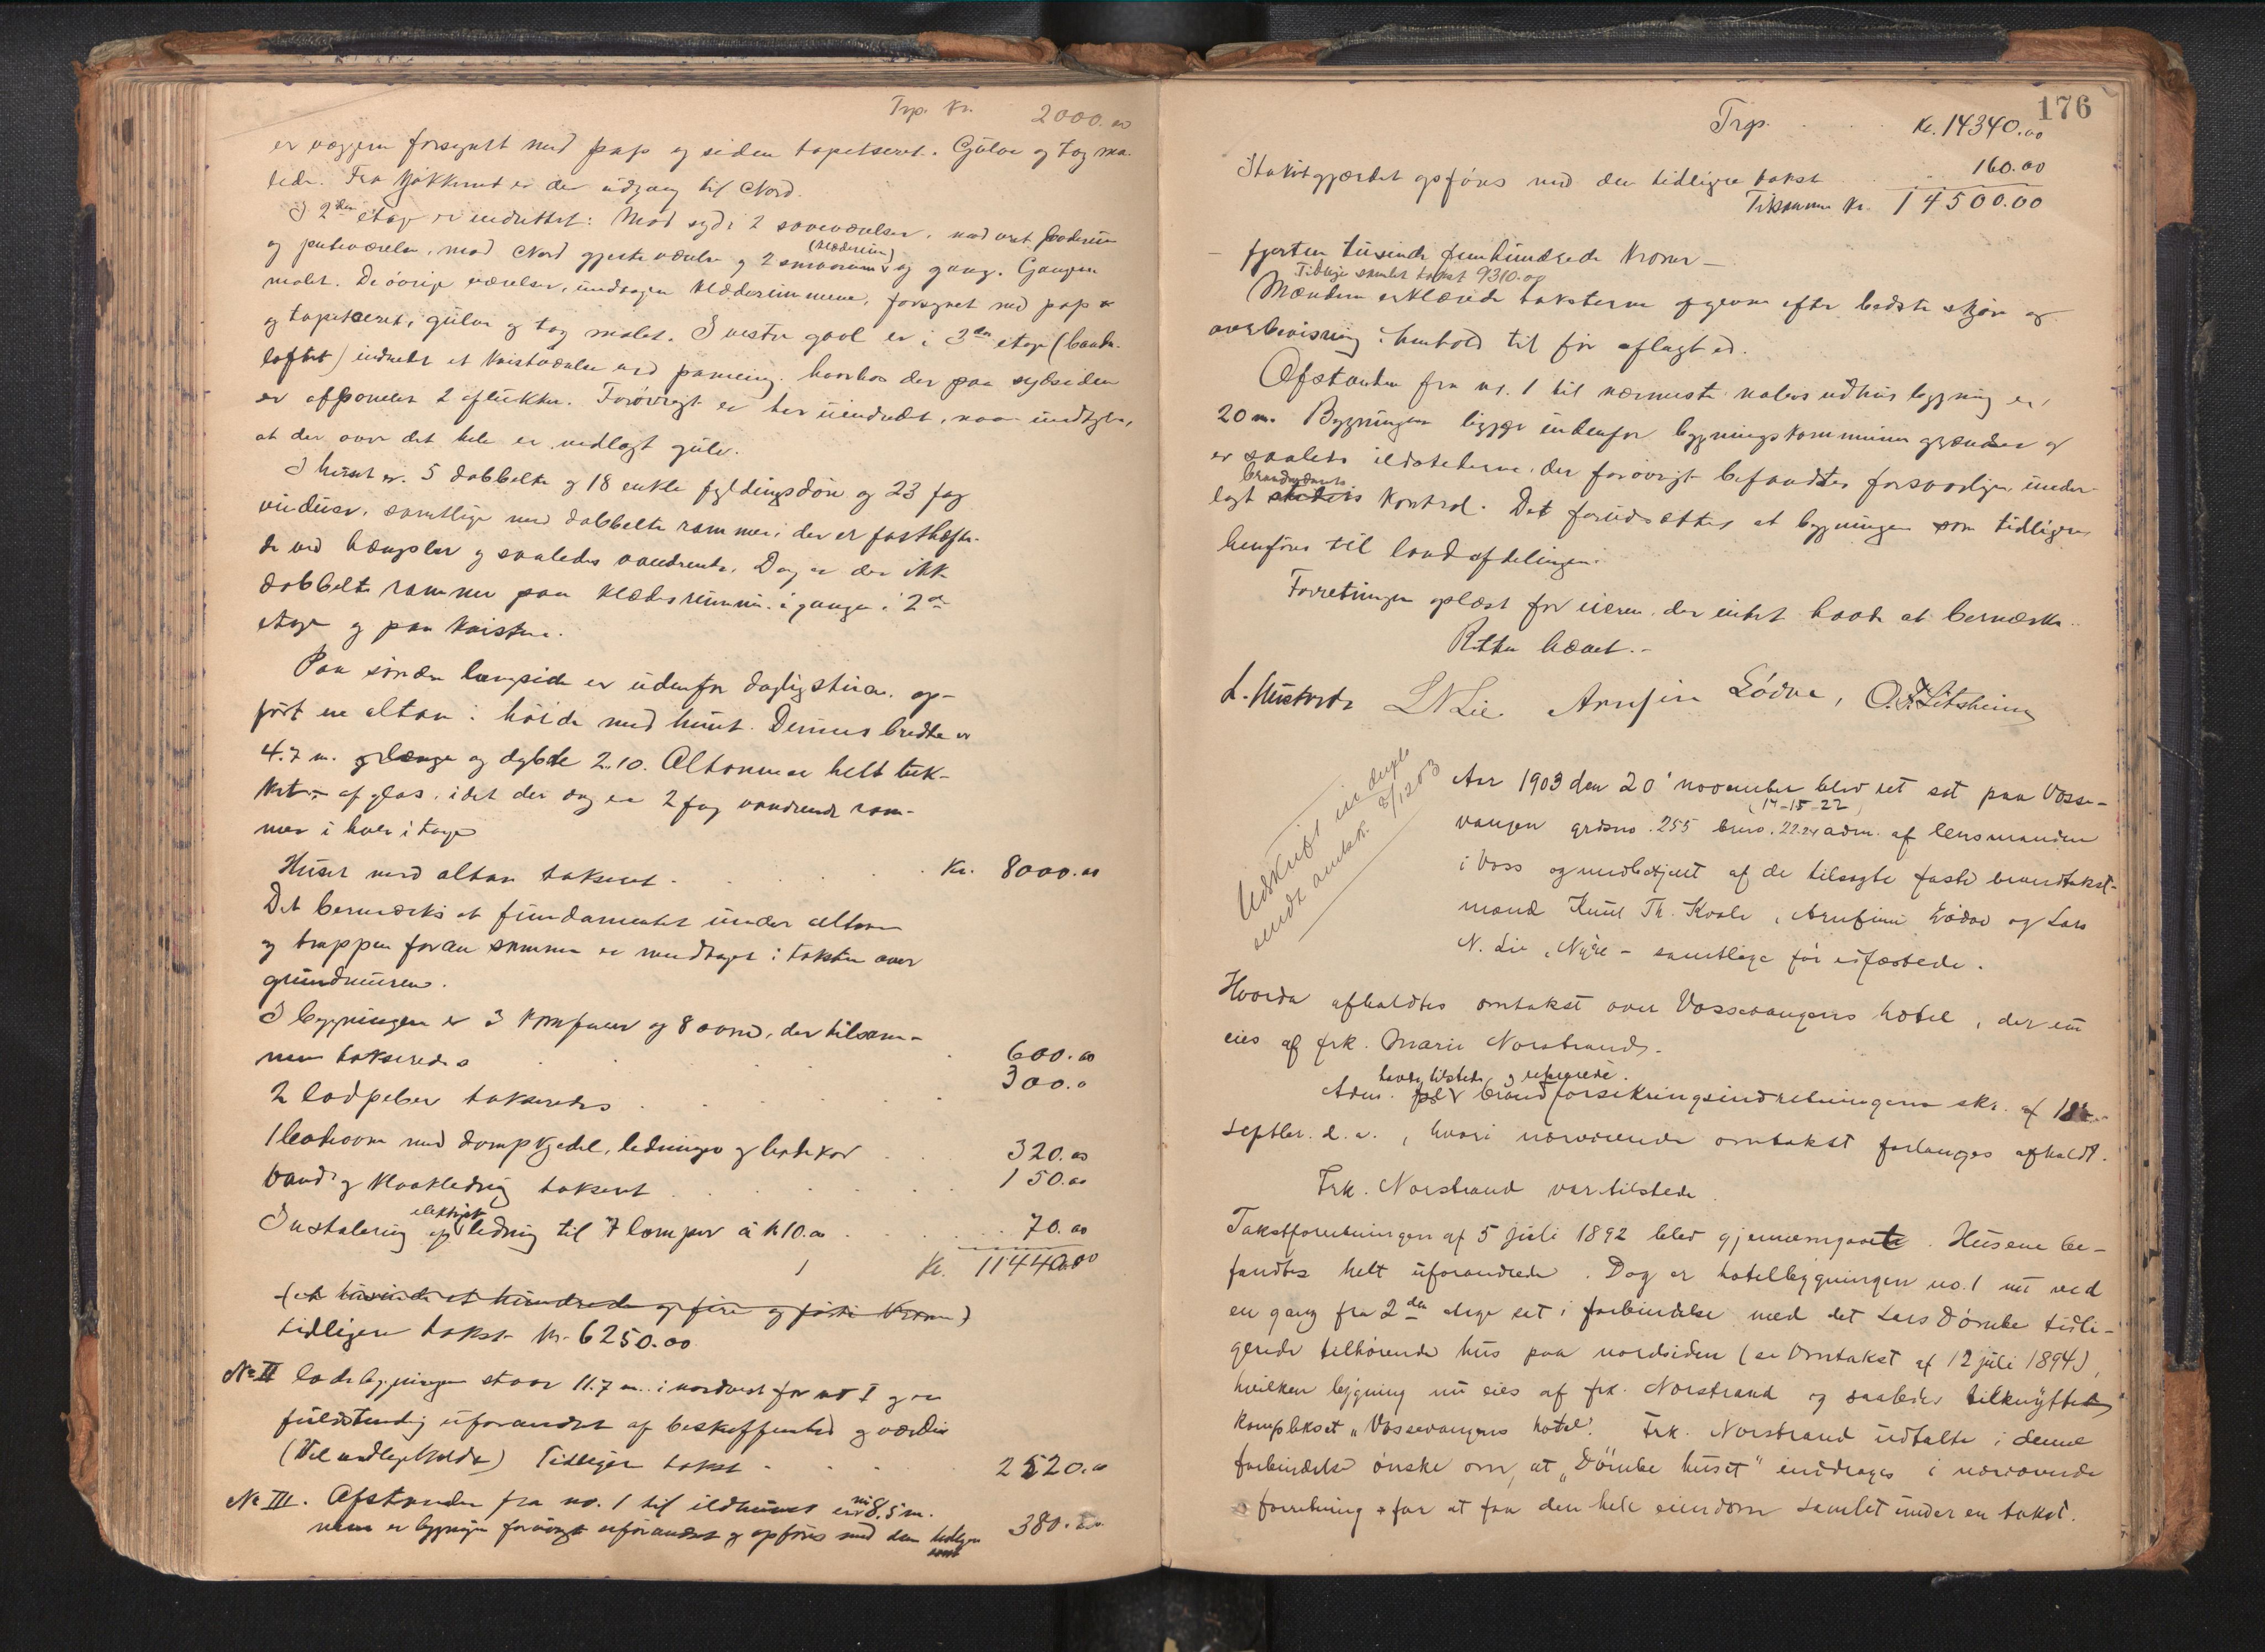 Trp. Kr. 2000.00
er væggene forsynet med pap og siden tapetseret. Gulve og tag ma-
lede. Fra kjøkkenet er der udgang til Nord.
I 2den etage er indrettet: Mod syd: 2 soveværelser, mod vest badeværelse
og pudseværelse, mod Nord gjesteværelse og 2 smaarum (klæderum) og gang. Gangen
malet. De øvrige værelser, undtagen klæderummene, forsynet med pap
og tapetseret, gulve og tag malet. I vestre gavl er i 3die etage (bande-
loftet) indredet et kvistværelse med paneling, hvorhos der paa sydsiden
er afpanelet 2 aflukker. Forøvrigt er her uindredet, naar undtages,
at der over det hele er nedlagt gulv.
I huset er 5 dobbelte og 18 enkle fyldingsdøre og 23 fag
vinduer, samtlige med dobbelte rammer, der er fasthefte-
de ved hængsler og saaledes vandrende. Dog er der ikke
dobbelte rammer paa klædesrummene i gangen i 2den
etage og paa kvisten.
Paa søndre langside er udenfor dagligstuen op-
ført en altan i høide med huset. Dennes bredde er
4.7 m. og længe og dybde 2.10. Altanen er helt tæk-
ket af glas, idet der dog er 2 fag vandrende ram-
mer i hver etage
Huset med altan takseret . . . Kr. 8000.00
Det bemærkes at fundamentet under altanen
og trappen foran samme er medtaget i taksten over
grundmuren.
I bygningen er 3 komfurer og 8 ovne, der tilsam-
men takseredes . . . 600.00
2 ladpiber takseredes . . . 300.00
1 badeovn med dampkjedel, ledninger og badekar . . 320.00
Vand og kloakledning takseret . . . 150.00
Instalering af elektrisk ledning til 7 lamper à kr 10.00 . . . 70.00
Kr. 11440.00
(et tusinde et hundrede og fire og førti kroner)
tidligere takst kr. 6250.00
No II ladebygningen staar 11.7 m. i nordvest for no I og er
fuldstændig uforandret af beskaffenhed og værdi
(Vel vedligeholdt) Tidligere takst . . . 2520.00
No III. Afstanden fra no. 1 til ildhuset er nu 8.5 m.
men er bygningen forøvrigt uforandret og opføres med den tidligere
takst 380.00
176
Trp. . . . Kr. 14340.00
Stakitgjærdet opføres med den tidligere takst . . 160.00
Tilsammen Kr. 14500.00
– fjorten tusinde femhundrede kroner –
Tidlige samlet takst 9310.00
Mændene erklærede taksterne afgivne efter bedste skjøn og
overbevisning i henhold til før aflagt ed.
Afstanden fra no. 1 til nærmeste nabos udhusbygning er
20 m. Bygningen ligger indenfor bygningskommunens grændser og
er saaledes ildstederne, der forøvrigt befandtes forsvarlige, under-
lagt brandvæsenets kontrol. Det forudsættes at bygningen som tidligere
henføres til landafdelingen.
Forretningen oplæst for eieren, der intet havde at bemærke.
Retten hævet.-
L. N. Lie Arnfin Lødve, O. T. Litsheim
Udskrift in duplo
sendt amtsk. 8/12 03
Aar 1903 den 20' november blev ret sat paa Vosse-
vangen grdsno. 255 brno. 22.24 (14-15-22) adm. af lensmanden
i Voss og medbetjent af de tilsagte faste brandtakst-
mænd Knut Th. Kvale, Arnfinn Lødve og Lars
N. Lie, Nyre – samtlige før edfæstede.
Hvorda afholdtes omtakst over Vossevangens hotel, der nu
eies af frk. Marie Norstrand.
Adm. havde tilstede og refererede brandforsikringsindretningens skr. af 18
septbr. d. a., hvori nærværende omtakst forlanges afholdt.
Frk. Norstrand var tilstede.
Takstforretningen af 5 juli 1892 blev gjennemgaaet. Husene be-
fandtes helt uforandrede. Dog er hotelbygningen no. 1 nu ved
en gang fra 2den etage sat i forbindelse med det Lars Dømbe tidli-
gerede tilhørende hus paa nordsiden (se Omtakst af 12 juli 1894),
hvilken bygning nu eies af frk. Norstrand og saaledes tilknyttet
komplekset "Vossevangens hotel". Frk. Norstrand udtalte i denne
forbindelse ønske om, at "Dømbe huset" inddrages i nærværende
forretning for at faa den hele eiendom samlet under en takst.